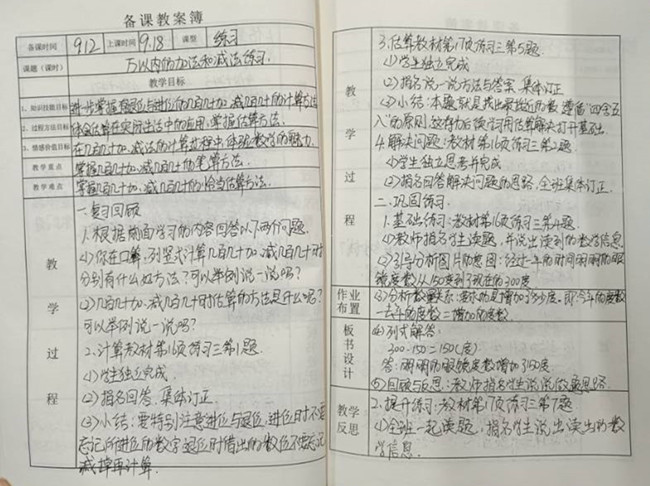 备课教案簿
备课时间 9.12 上课时间 9.18 课型 练习
课题(课时) 万以内的加法和减法练习.
教学目标
1、知识技能目标 进一步掌握和进位的几百几十加、减几百几十的计算方法
2、过程方法目标 体会估算在实际生活中的应用,掌握估算方法.
3、情感价值目标 在几百几十加、减法的计算过程中,体验数学的魅力.
教学重点 掌握几百几十加、减几百几十的笔算方法.
教学难点 掌握几百几十加、减几百几十的恰当估算方法.
教学过程
一.复习回顾
1.根据前面学习的内容回答以下两个问题.
(1)你在口算,列竖式计算几百几十加、减几百几十时
分别有什么好方法?可以举例说一说吗?
(2)几百几十加、减几百几十时估算的方法是什么呢?
可以举例说一说吗?
2.计算教材第16页练习三第1题.
(1)学生独立完成.
(2)指名回答.集体订正.
(3)小结:要特别注意进位与退位,进位时不要
忘记所进位的数字退位时借出的数位不要忘记
减掉再计算.
教学过程
3.估算教材第17页练习三第5题.
(1)学生独立完成
(2)指名说一说方法与答案.集体订正.
(3)小结:本题就是找出最接近的数,遵循“四舍五
入”的原则,这样为后续学习用估算解决打开基础.
4.解决问题:教材第16页练习三第2题.
(1)学生独立思考并完成
(2)指名回答解决问题的思路,全班集体订正.
二.巩固练习.
1.基础练习:教材第16页练习三第4题.
(1)教师指名学生读题,并说出读到的数学信息.
(2)引导分析图片的意图:经过一年的时间明明的眼
镜度数从150度到了现在的300度
作业布置
(3)分析数量关系:要求的是增加了多少度.即:今年的度数
-去年的度数=增加的度数.
板书设计
(4)列式解答:
300-150=150(度)
答:明明的眼镜度数增加了150度
(5)回顾与反思:教师指名学生说说做题思路.
教学反思
2.提升练习:教材第17页练习三第7题
(1)全班一起读题,指名学生说出读出的数
学信息.